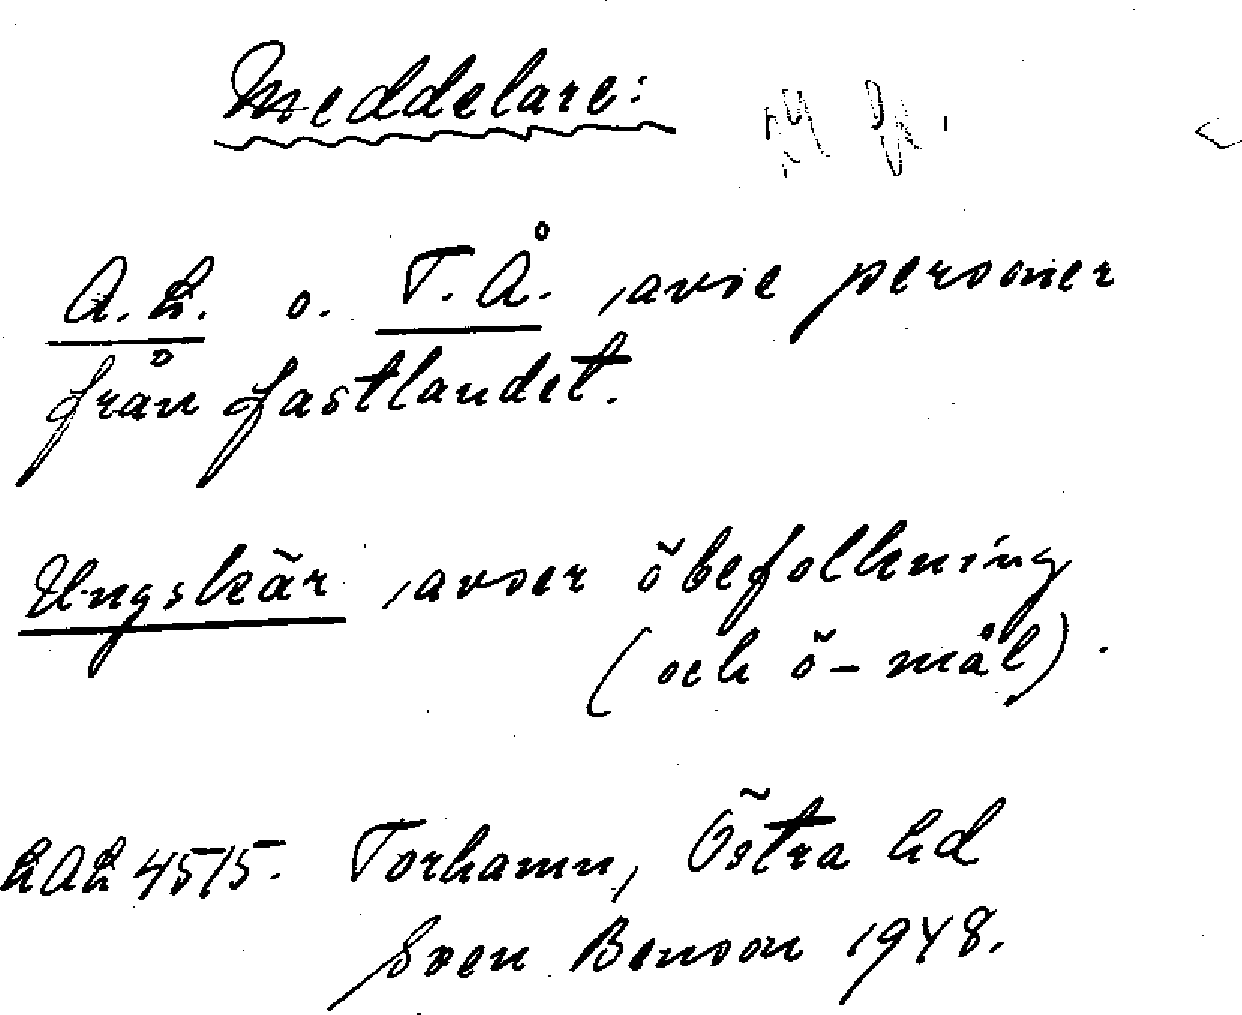 Meddelare:
A.L. o. T.Å. avse personer
från fastlandet.
Ungskär, avser öbefolkning
(och ö-mål).
LAL 4515. Torhamn, Östra hd
Sven Benson 1948.